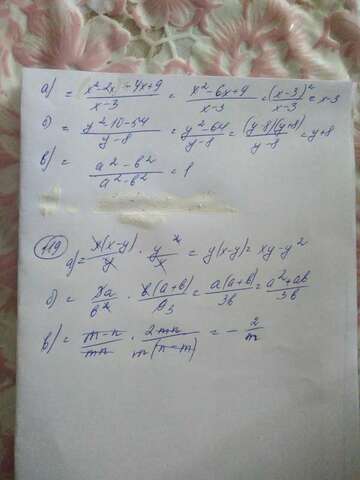 а) = x²-2x-4x+9 / x-3 = x²-6x+9 / x-3 = (x-3)² / x-3 = x-3
б) = y²-10-54 / y-8 = y²-64 / y-8 = (y-8)(y+8) / y-8 = y+8
в) = a²-b² / a²-b² = 1
119
а) = x(x-y) / y · y² / x = y(x-y) = xy-y²
б) = 3a / b² · b(a+b) / 9 = a(a+b) / 3b = a²+ab / 3b
в) = m-n / mn · 2mn / m(n-m) = - 2 / m